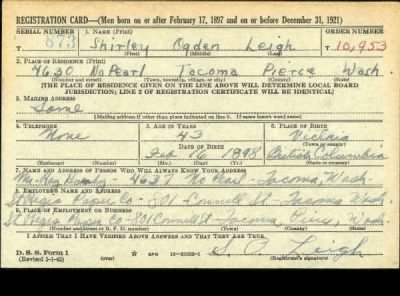 REGISTRATION CARD—(Men born on or after February 17, 1897 and on or before December 31, 1921)
SERIAL NUMBER 1. NAME (Print) ORDER NUMBER
T 873 Shirley Ogden Leigh T 10,953
(First) (Middle) (Last)
2. PLACE OF RESIDENCE (Print)
4630 No Pearl Tacoma Pierce Wash.
(Number and street) (Town, township, village, or city) (County) (State)
[THE PLACE OF RESIDENCE GIVEN ON THE LINE ABOVE WILL DETERMINE LOCAL BOARD
JURISDICTION; LINE 2 OF REGISTRATION CERTIFICATE WILL BE IDENTICAL]
3. MAILING ADDRESS
Same
[Mailing address if other than place indicated on line 2. If same insert word same]
4. TELEPHONE 5. AGE IN YEARS 6. PLACE OF BIRTH
None 43 Victoria
DATE OF BIRTH (Town or county)
Feb 16 1898 British Columbia
(Exchange) (Number) (Mo.) (Day) (Yr.) (State or country)
7. NAME AND ADDRESS OF PERSON WHO WILL ALWAYS KNOW YOUR ADDRESS
No Pearl - Tacoma, Wash.
8. EMPLOYER'S NAME AND ADDRESS
St Regis Paper Co - 801 St - Tacoma Wash.
9. PLACE OF EMPLOYMENT OR BUSINESS
St Regis Paper Co - 801 St - Tacoma, Wash.
(Number and street or R. F. D. number) (Town) (County) (State)
I AFFIRM THAT I HAVE VERIFIED ABOVE ANSWERS AND THAT THEY ARE TRUE.
D. S. S. Form 1
(Revised 1-1-42) GPO S. O. Leigh
(Registrant's signature)